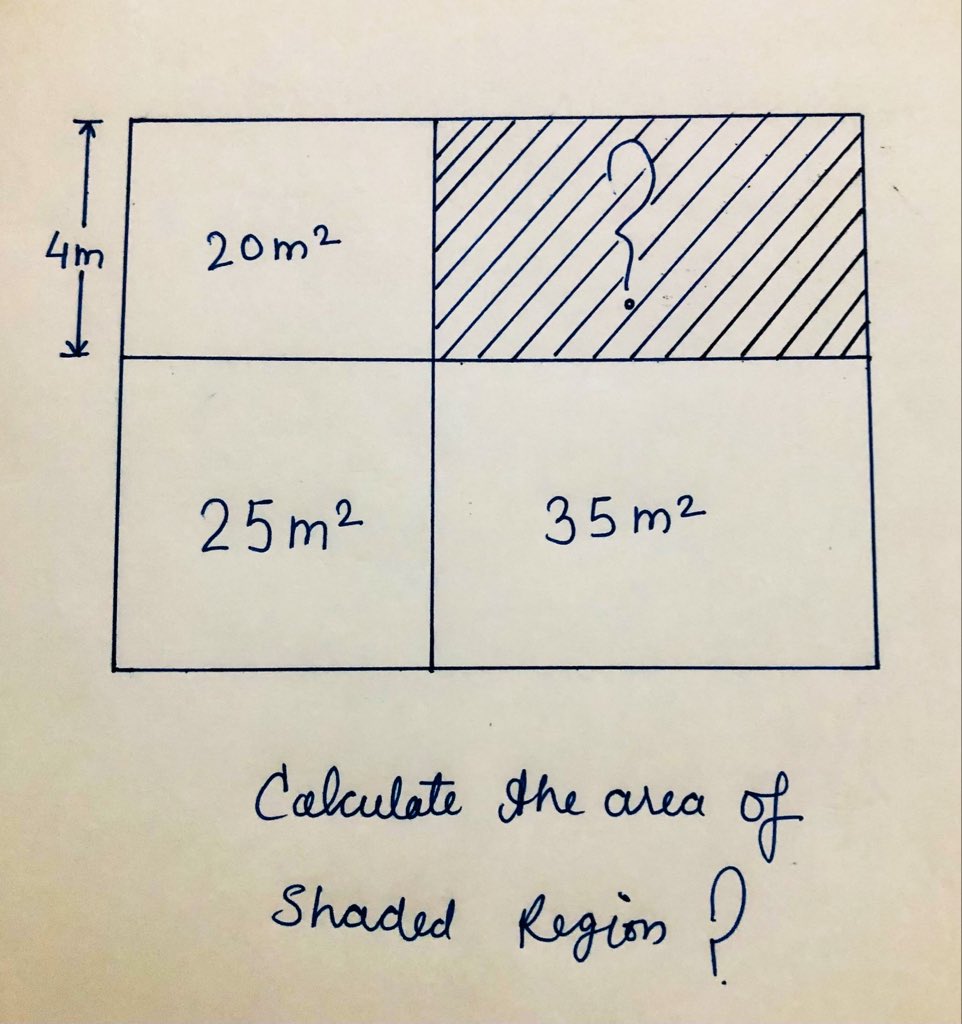 20m²
?
4m
25m²
35m²
Calculate the area of
Shaded Region ?